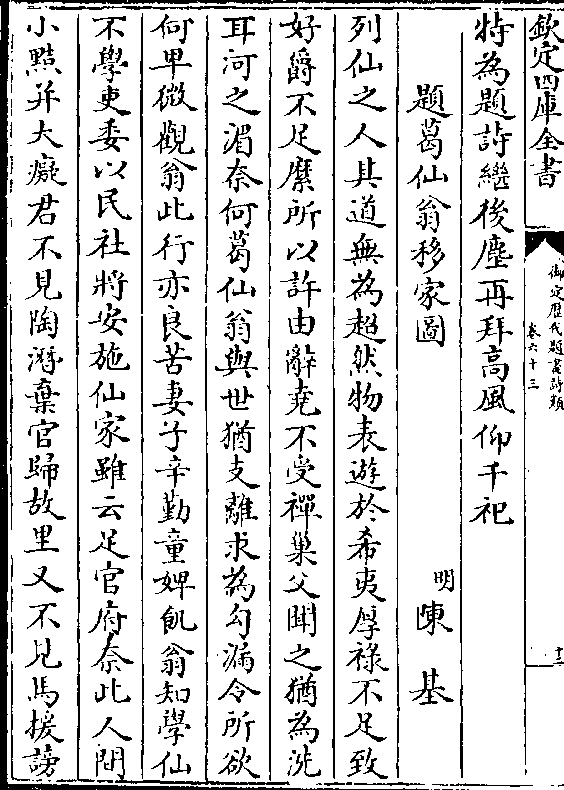 欽定四庫全書
御定歴代題畫詩類
卷六十三
十三
特為題詩繼後塵再拜高風仰千祀
題葛仙翁移家圖
明陳基
列仙之人其道無為超然物表遊於希夷厚祿不足致
好爵不足縻所以許由辭堯不受禪巢父聞之猶為洗
耳河之湄奈何葛仙翁與世猶支離求為勾漏令所欲
何卑微觀翁此行亦良苦妻子辛勤童婢飢翁知學仙
不學吏委以民社將安施仙家雖云足官府奈此人間
小黠并大癡君不見陶潛棄官歸故里又不見馬援謗